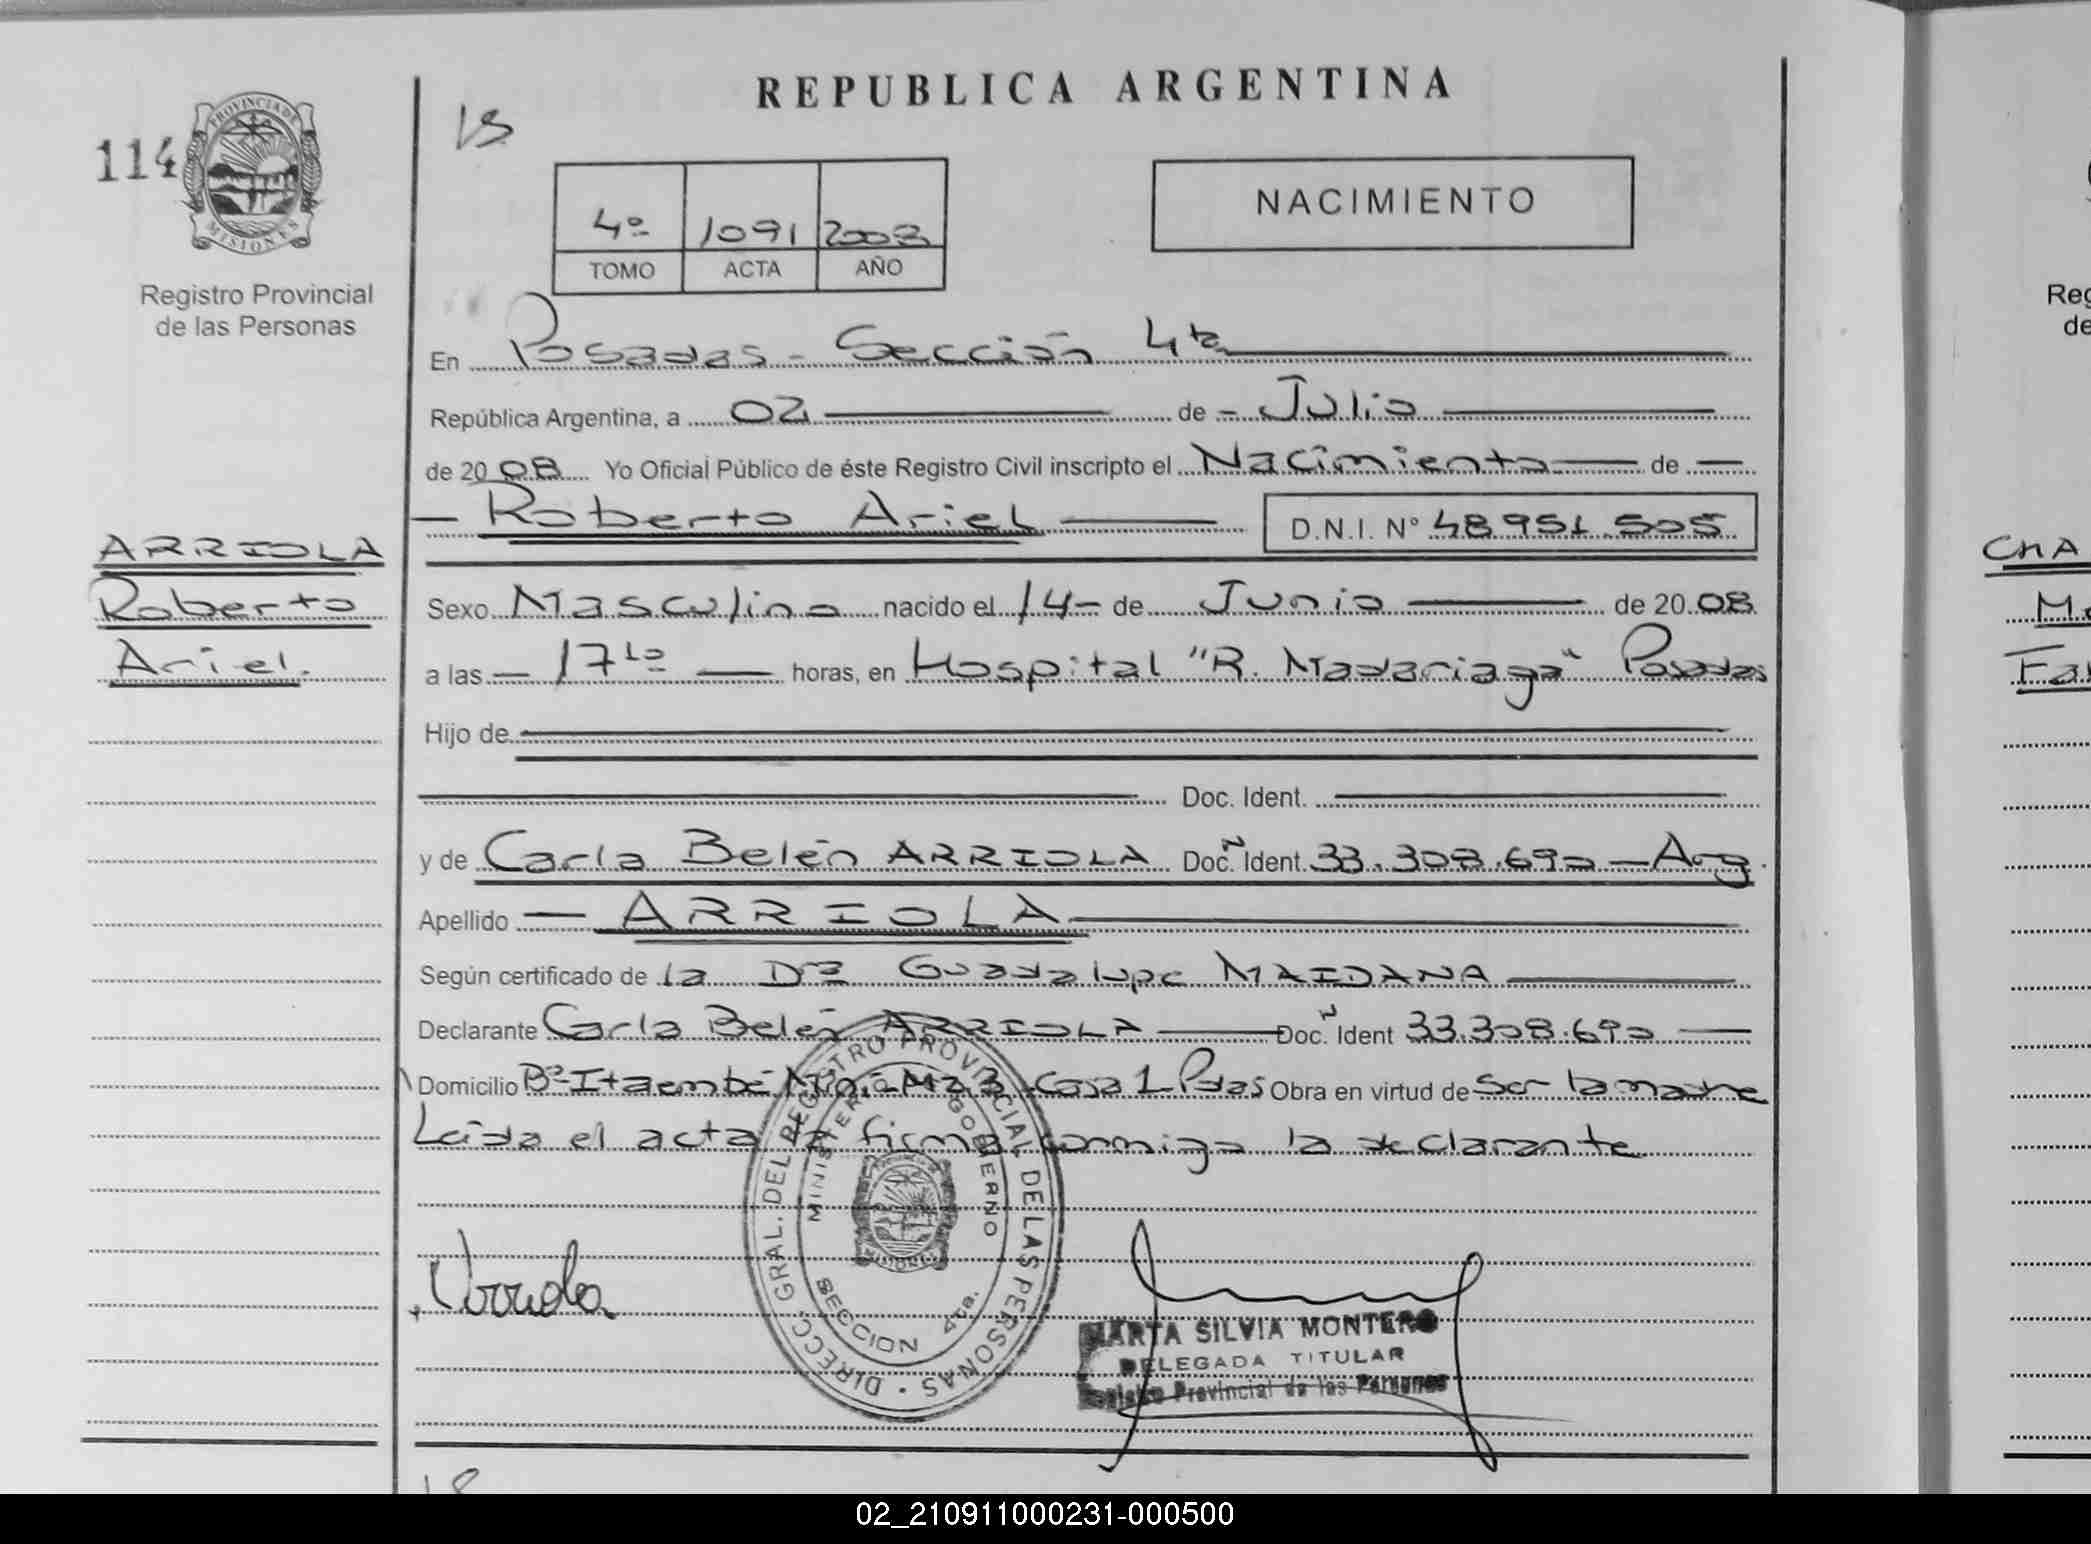 REPUBLICA ARGENTINA
114
PROVINCIA DE
MISIONES
Registro Provincial
de las Personas
4º 1091 2008
TOMO ACTA AÑO
NACIMIENTO
En Posadas - Sección 4ta
República Argentina, a 02 de - Julio
de 20 08 Yo Oficial Público de éste Registro Civil inscripto el Nacimiento de
Roberto Ariel D.N.I. Nº 48 951 505
ARRIOLA
Roberto
Ariel.
Sexo Masculino nacido el 14- de Junio de 20 08
a las 17 horas, en Hospital "R. Madariaga" Posadas
Hijo de
Doc. Ident.
y de Carla Belén ARRIOLA Doc. Ident. 33.308.690 - Arg.
Apellido ARRIOLA
Según certificado de la Dra Guadalupe MAIDANA
Declarante Carla Belén ARRIOLA Doc. Ident 33.308.690
Domicilio Bº Itaembé Miní - Mz 3 Casa 1 Pdas Obra en virtud de ser la madre
Leida el acta la firma conmigo la declarante
Arriola
DIRECC. GRAL. DEL REGISTRO PROVINCIAL DE LAS PERSONAS
MINISTERIO GOBIERNO
MISIONES
SECCION 4ta.
MARTA SILVIA MONTERO
DELEGADA TITULAR
Registro Provincial de las Personas
Reg
de
CHA
Fa
02_210911000231-000500